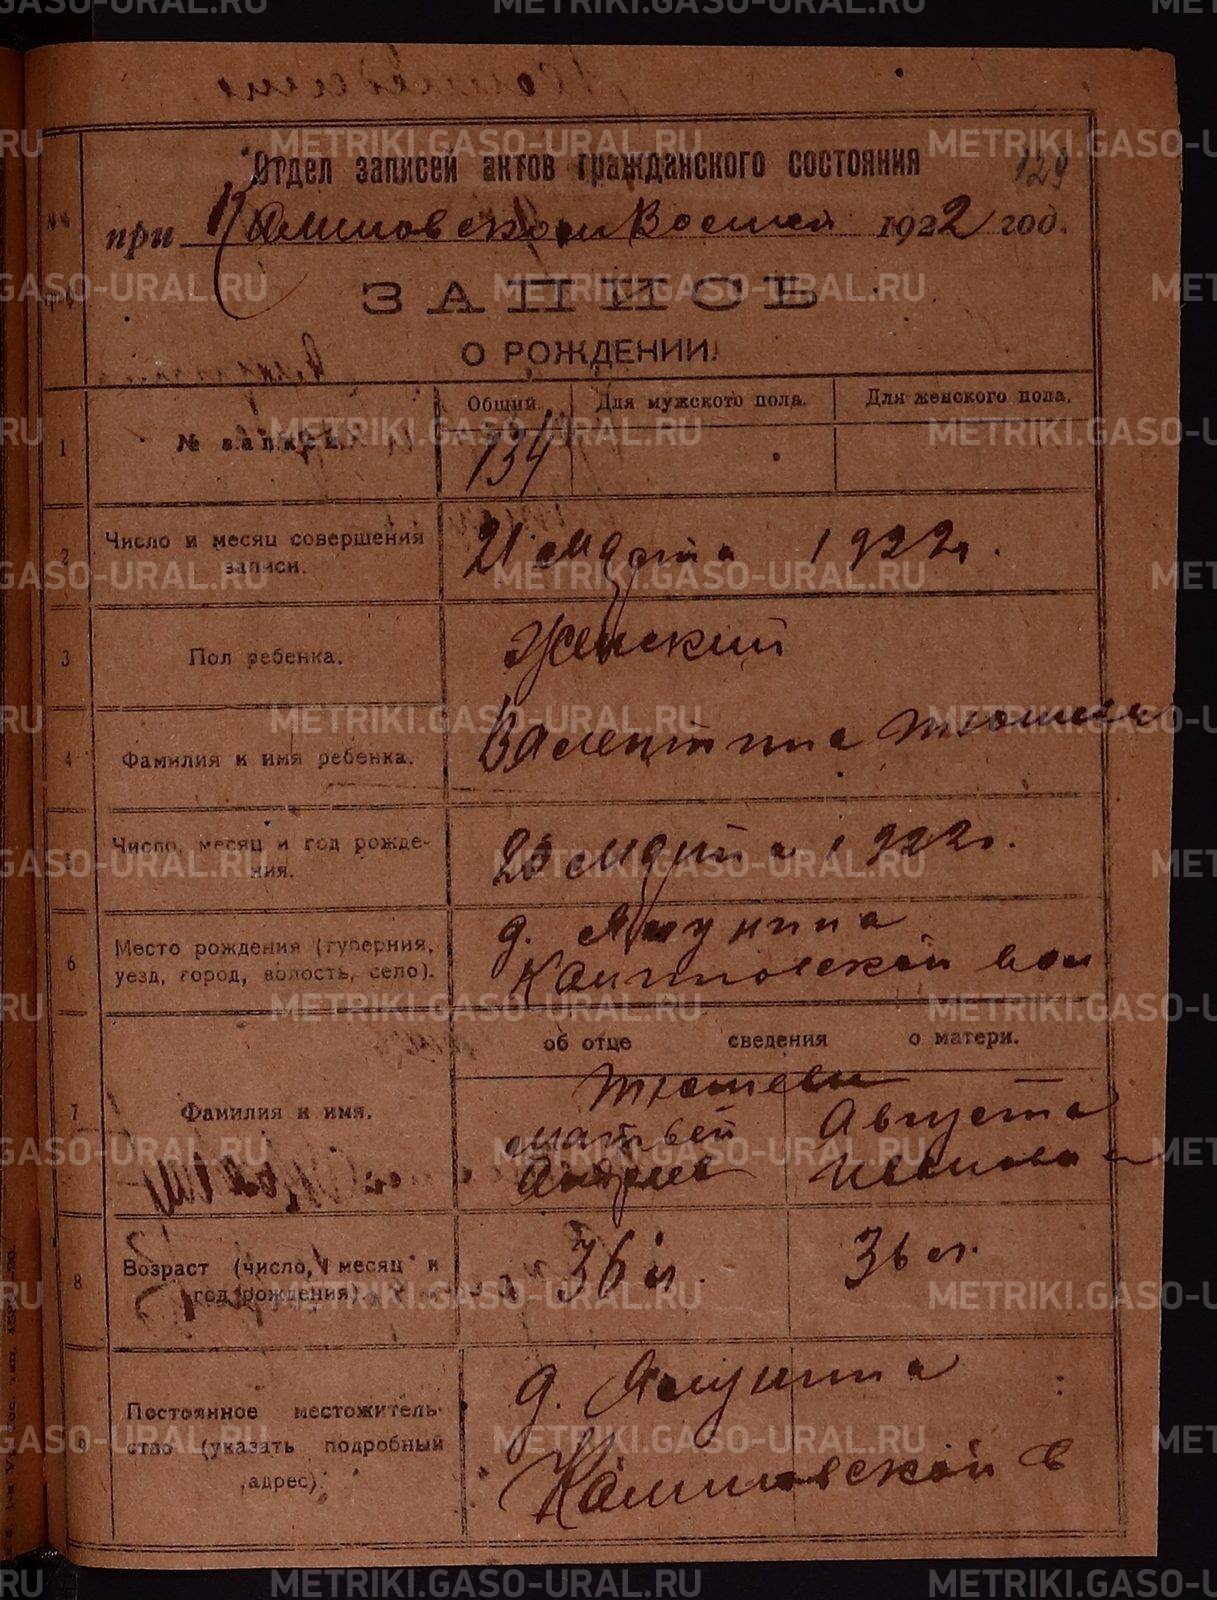 129
Отдел записей актов гражданского состояния
при 1922 год.
ЗАПИСЬ
О РОЖДЕНИИ.
Общий. Для мужского пола. Для женского пола.
1 № записи. 134
2 Число и месяц совершения записи. 21 Марта 1922 г.
3 Пол ребенка. Женский
4 Фамилия и имя ребенка. Валентина
5 Число, месяц и год рождения. 20 Марта 1922 г.
6 Место рождения (губерния, уезд, город, волость, село). д. Ялунина
вол
об отце сведения о матери.
7 Фамилия и имя.
Матвей Августа
Андреев Ивановна
8 Возраст (число, месяц и год рождения). 36 л. 36 л.
9 Постоянное местожительство (указать подробный адрес). д. Ялунина
в
METRIKI.GASO-URAL.RU